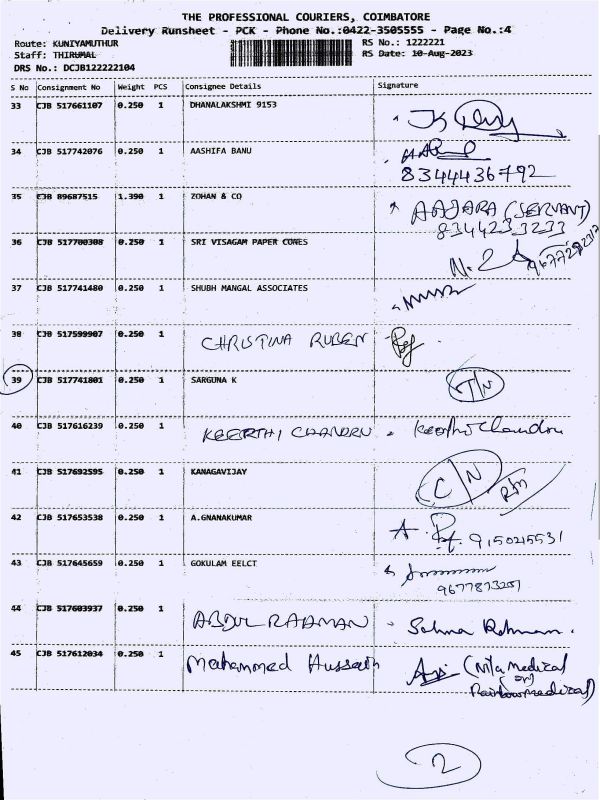 THE PROFESSIONAL COURIERS, COIMBATORE
Delivery Runsheet - PCK - Phone No.:0422-3505555 - Page No.:4
Route: KUNIYAMUTHUR RS No.: 1222221
Staff: THIRUMAL RS Date: 10-Aug-2023
DRS No.: DCJB122222104
S No Consignment No Weight PCS Consignee Details Signature
33 CJB 517661107 0.250 1 DHANALAKSHMI 9153
34 CJB 517742076 0.250 1 AASHIFA BANU
8344436792
35 CJB 89687515 1.390 1 ZOHAN & CO AAJARA (SERVANT)
8344233233
36 CJB 517700308 0.250 1 SRI VISAGAM PAPER CONES
37 CJB 517741480 0.250 1 SHUBH MANGAL ASSOCIATES
38 CJB 517599907 0.250 1 CHRISTINA RUBEN
39 CJB 517741801 0.250 1 SARGUNA K T/N
40 CJB 517616239 0.250 1 KEERTHI CHANDRU Keerthi Chandru
41 CJB 517692595 0.250 1 KANAGAVIJAY C/N
42 CJB 517653538 0.250 1 A.GNANAKUMAR 9150215531
43 CJB 517645659 0.250 1 GOKULAM EELCT
9677873251
44 CJB 517603937 0.250 1 ABDUL RAHMAN Salma Rahman.
45 CJB 517612034 0.250 1 Mohammed Hussain (Nila medical
(or)
Rainbow medical)
2